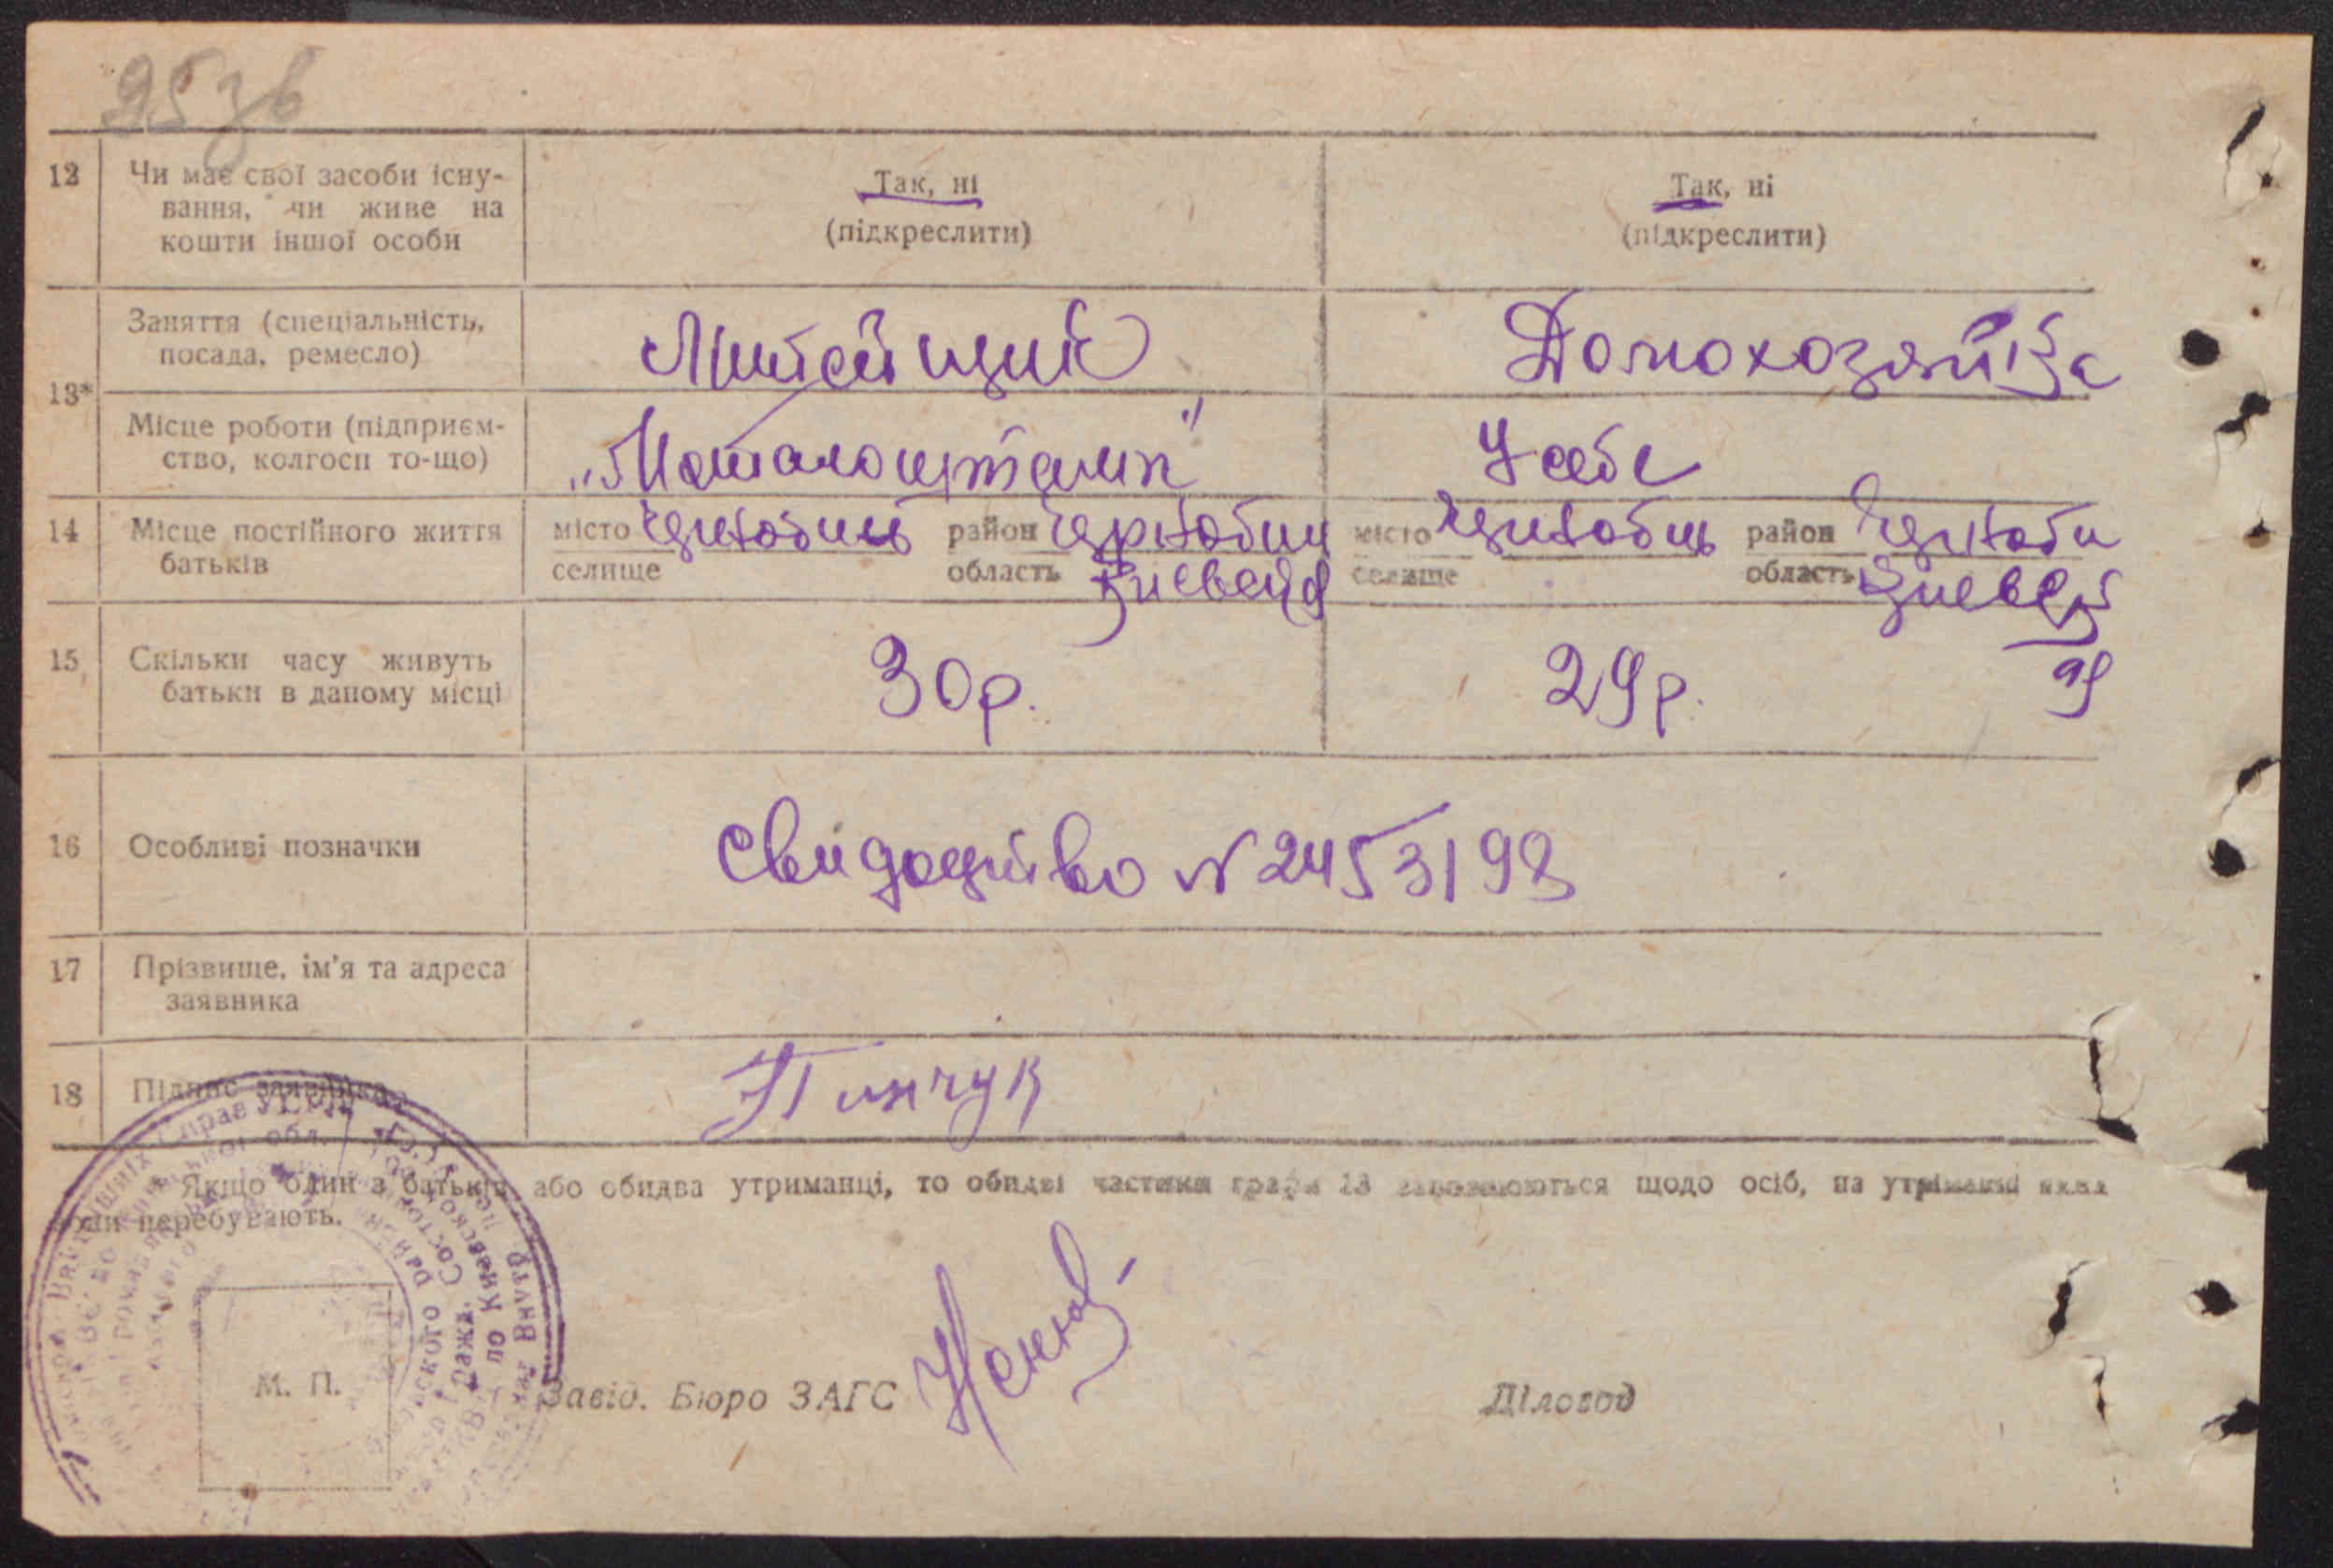 95 зв
12 Чи має свої засоби існу-
вання, чи живе на
кошти іншої особи
Так, ні
(підкреслити)
Так, ні
(підкреслити)
13*
Заняття (спеціальність,
посада, ремесло)
Литейщик
Домохозяйка
Місце роботи (підприєм-
ство, колгосп то-що)
„Металоштамп"
У себе
14 Місце постійного життя
батьків
місто Чернобиль район Чернобил
селище область Киевск
місто Чернобиль район Черноби
селище область Киевск
15 Скільки часу живуть
батьки в даному місці
30 р.
29 р.
95
16 Особливі позначки
Свидоцтво № 2453198
17 Прізвище, ім'я та адреса
заявника
18 Підпис заявника
Пинчук
Якщо один з батьків або обидва утриманці, то обидві частини графи 13 заповнюються щодо осіб, на утриманні яких
вони перебувають.
М. П.
Завід. Бюро ЗАГС
Діловод